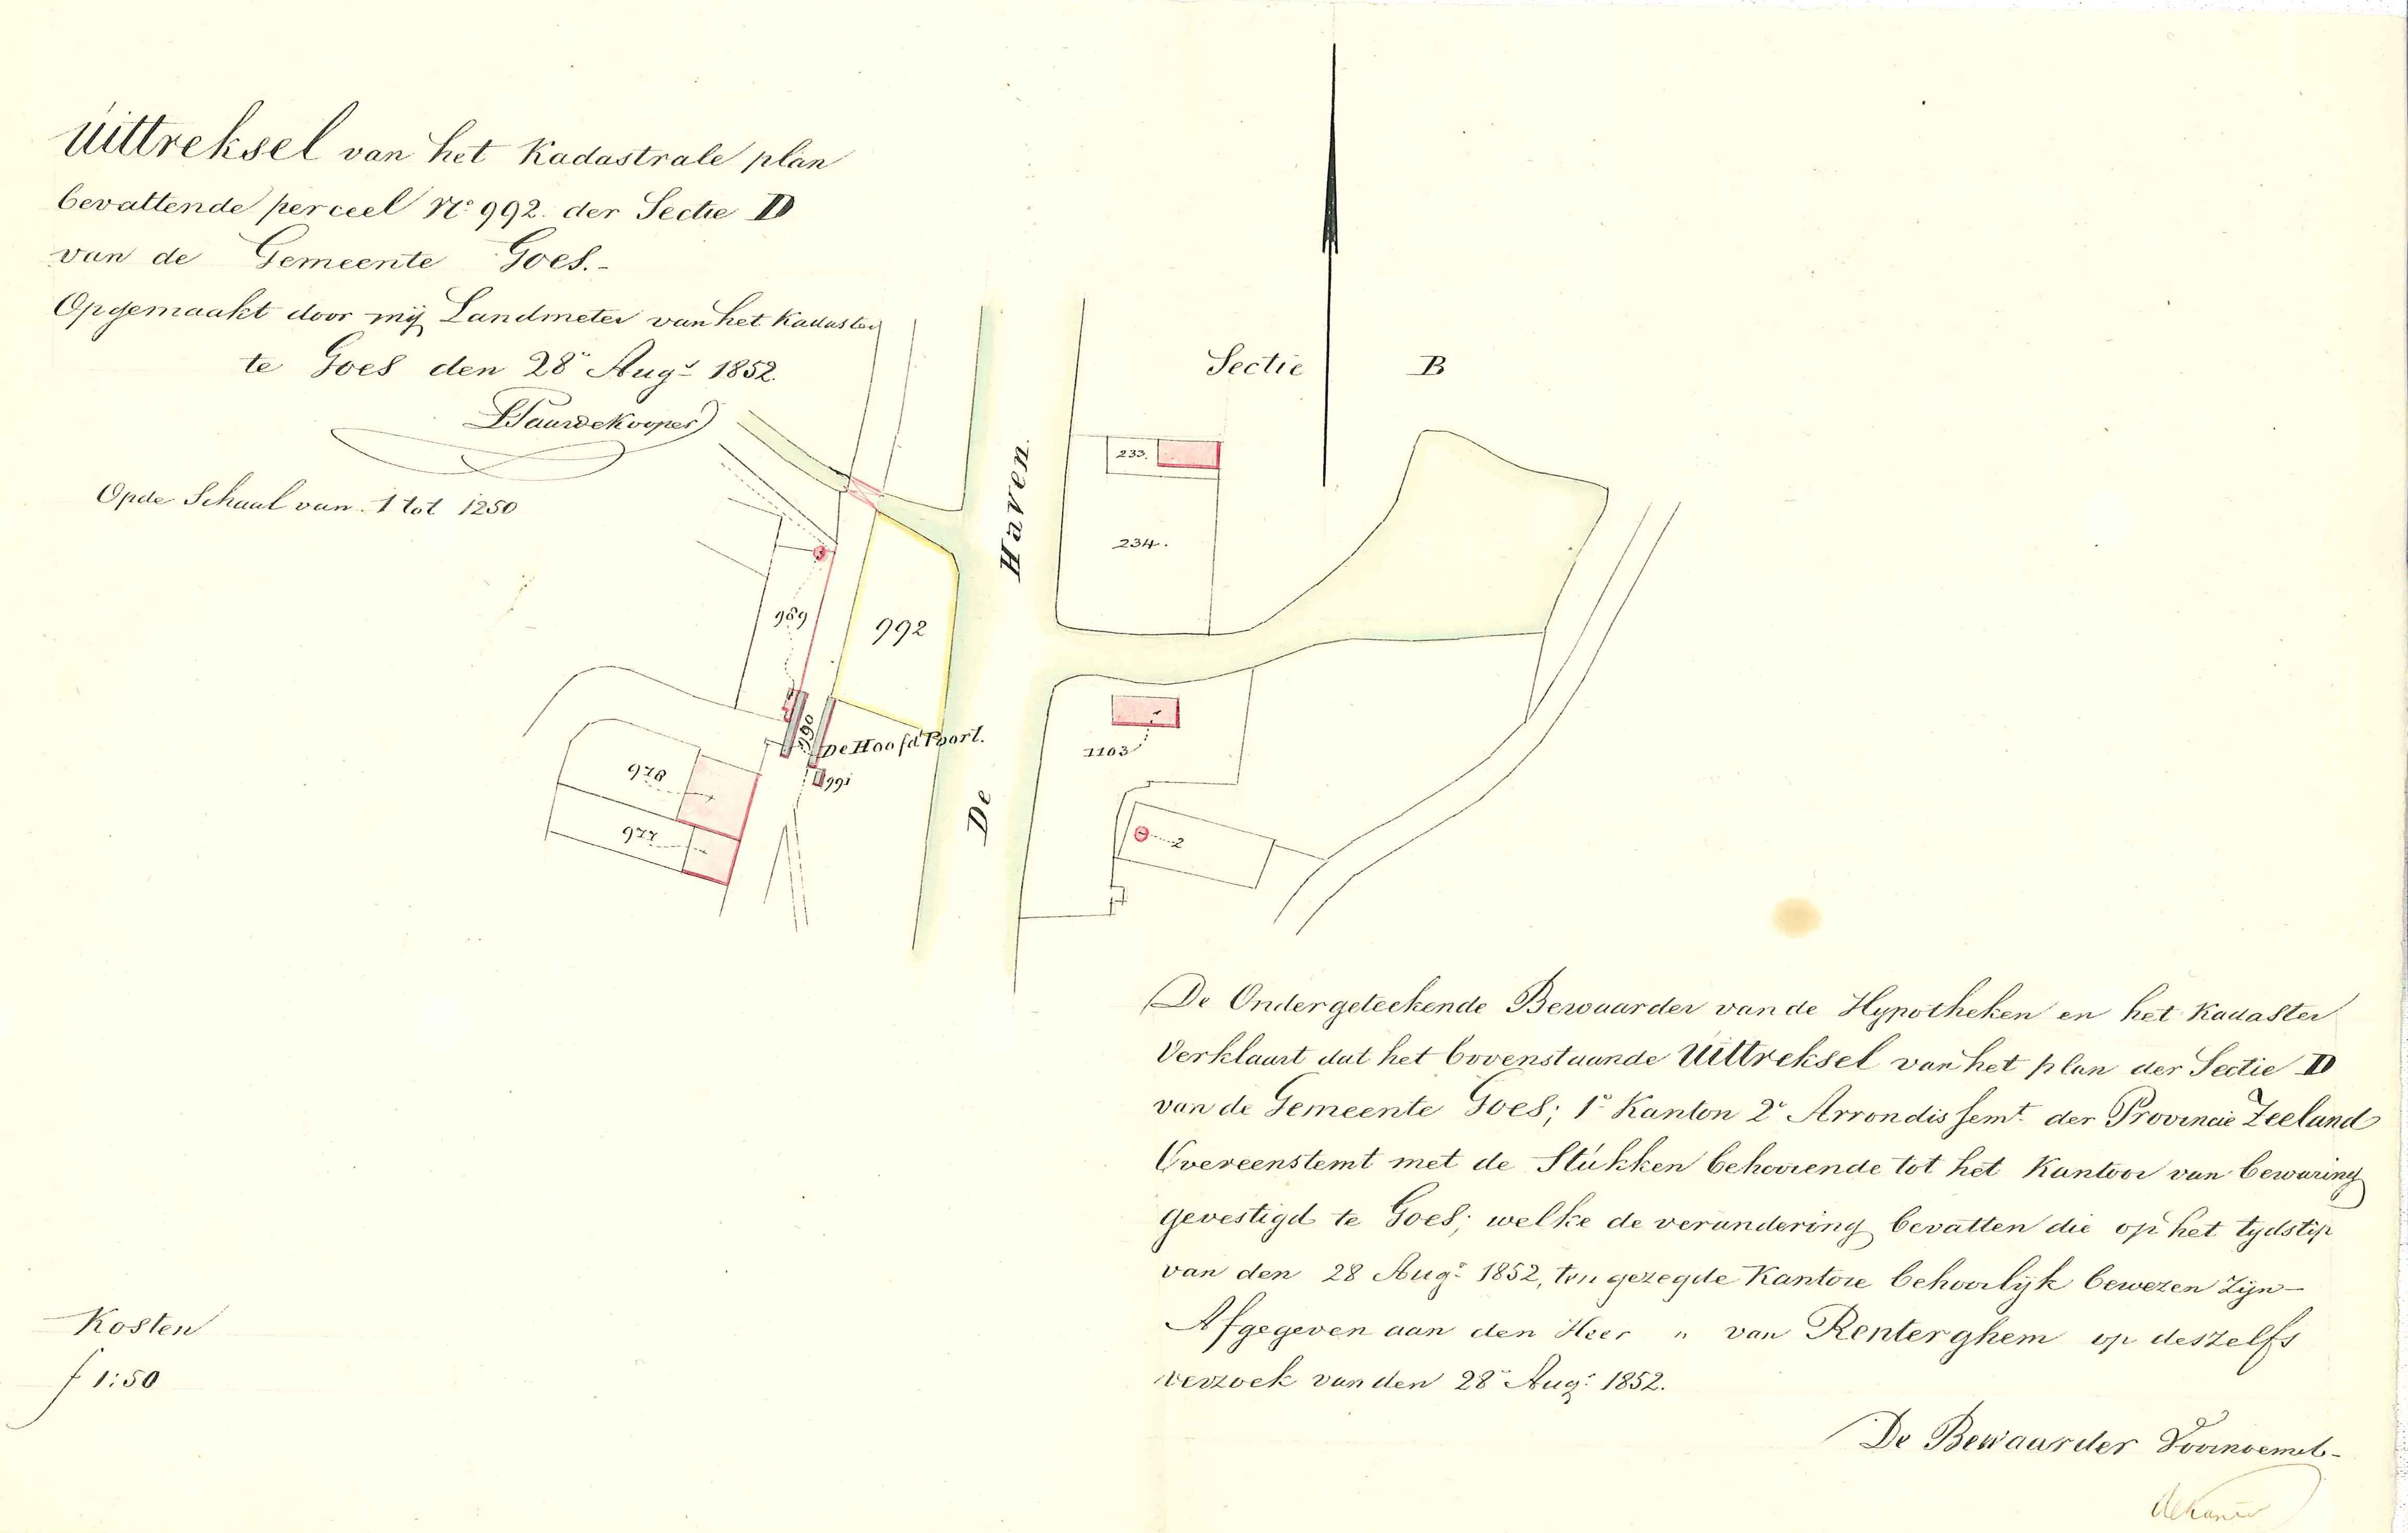 Uittreksel van het Kadastrale plan
bevattende perceel No 992. der Sectie D
van de Gemeente Goes.-
Opgemaakt door mij Landmeter van het Kadaster
te Goes den 28e Augt 1852.
Op de Schaal van 1 tot 1250
Sectie B
De Haven.
233.
234.
989
992
990
De Hoofd Poort.
991
978
977
1103
1
2
De Ondergeteekende Bewaarder van de Hypotheken en het Kadaster
Verklaart dat het bovenstaande Uittreksel van het plan der Sectie D
van de Gemeente Goes; 1e Kanton 2e Arrondissemt. der Provincie Zeeland
Overeenstemt met de Stukken behoorende tot het Kantoor van bewaring
gevestigd te Goes; welke de verandering bevatten die op het tydstip
van den 28 Augs 1852, ten gezegde Kantore behoorlyk bewezen Zijn-
Afgegeven aan den Heer " van Renterghem op deszelfs
verzoek van den 28e Augs 1852.
De Bewaarder Voornoemd-
Kosten
f 1:50